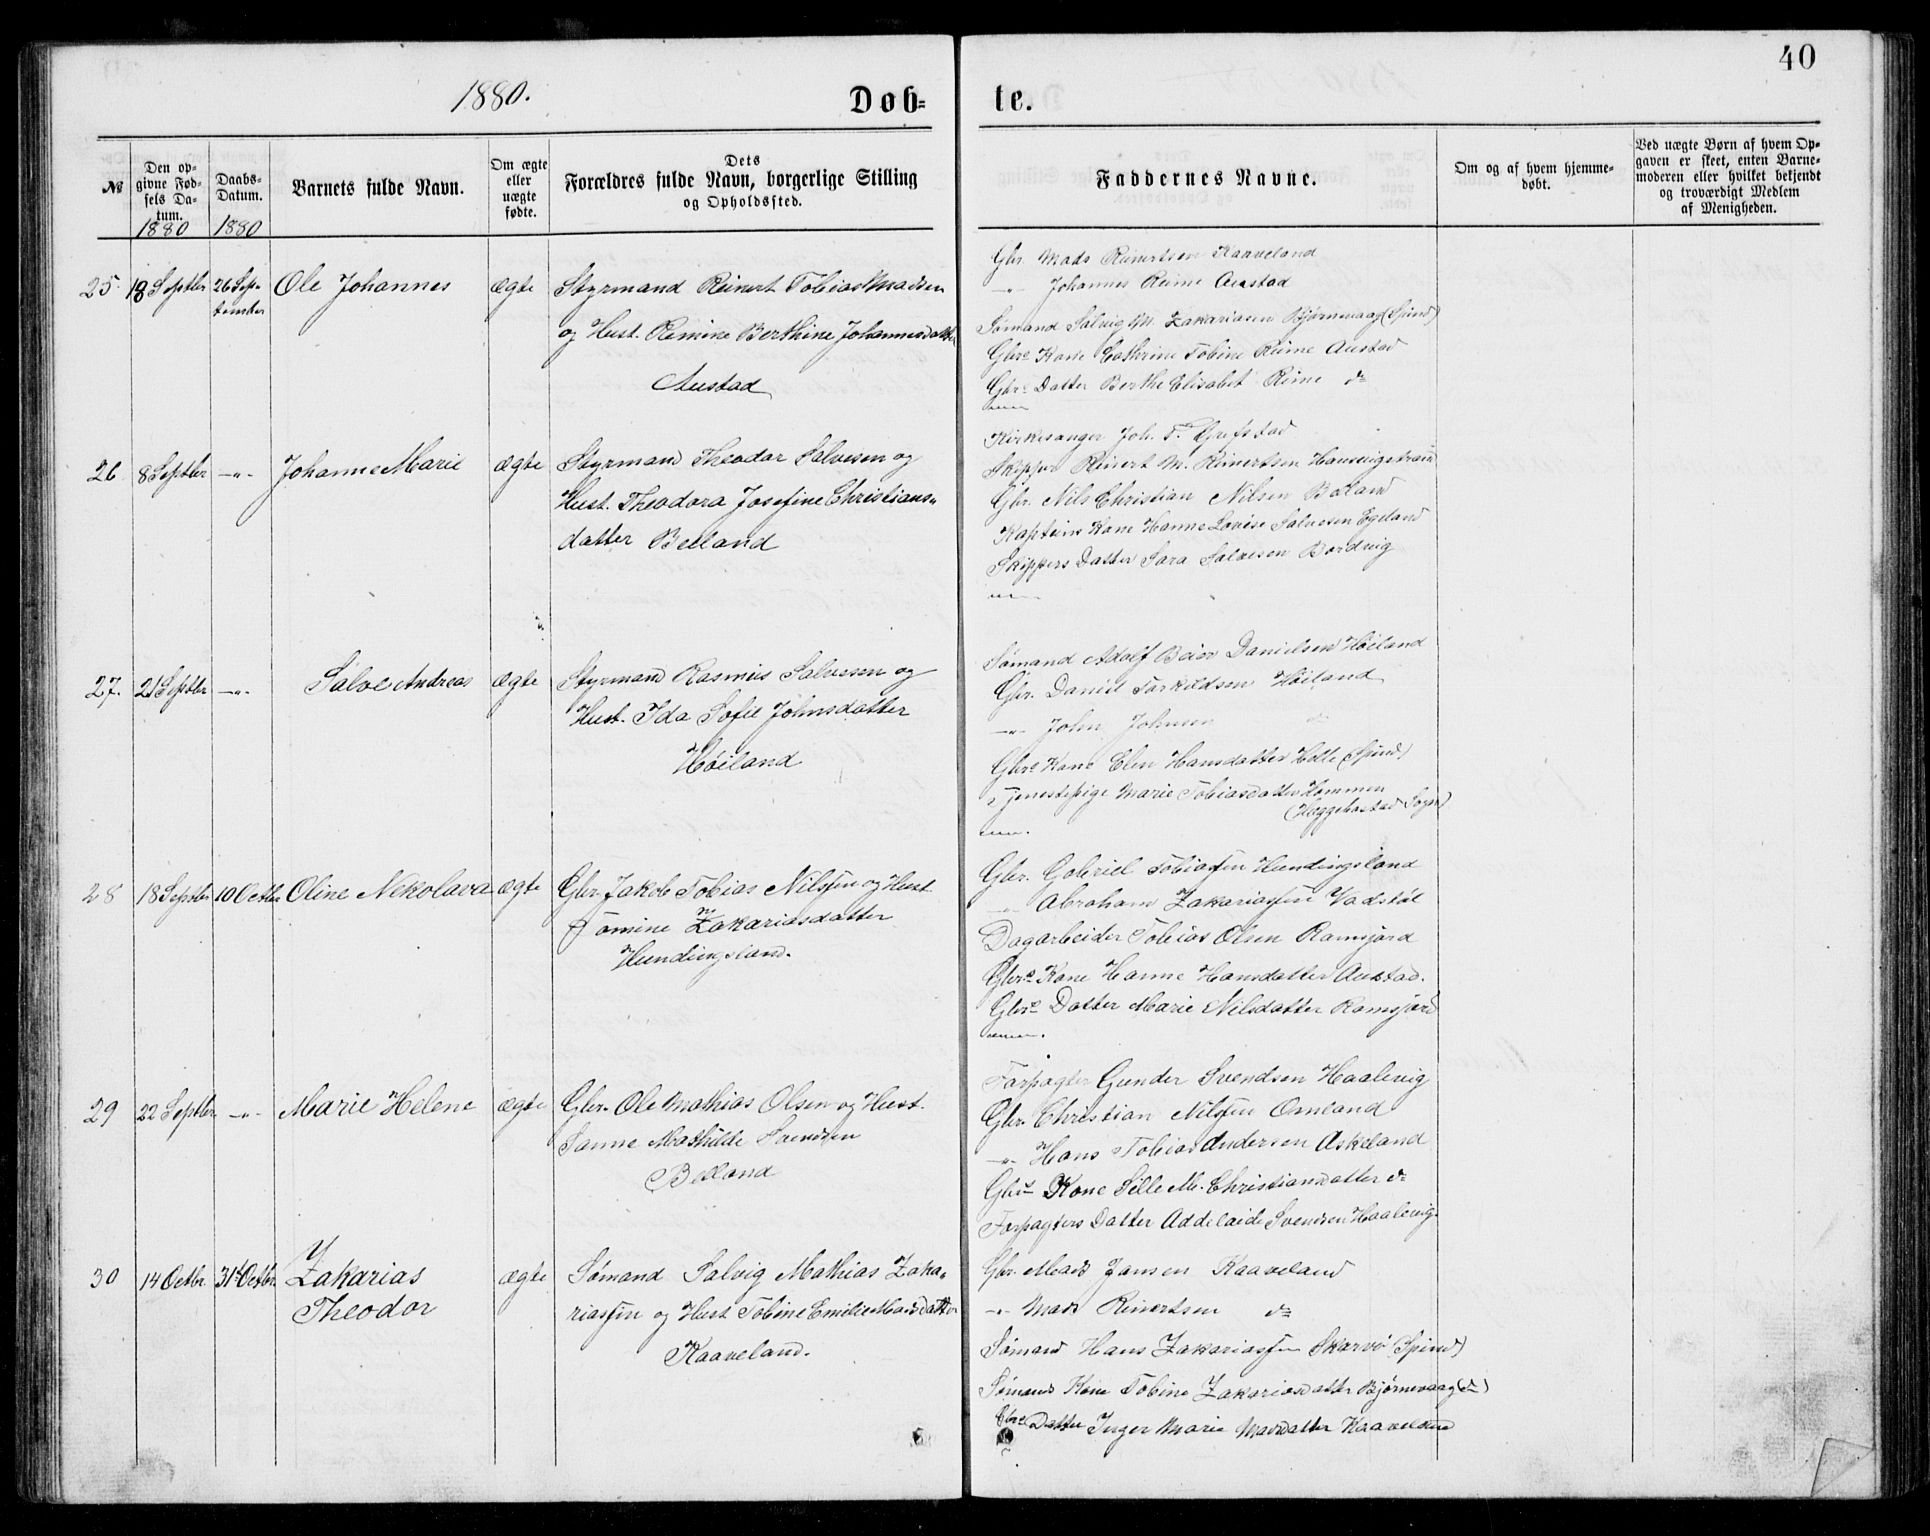 40
1880.
Døb-
te.
№
Den op-
givne Fød-
sels Da-
tum.
1880
Daabs-
Datum.
1880
Barnets fulde Navn.
Om ægte
eller
uægte
fødte.
Dets
Forældres fulde Navn, borgerlige Stilling
og Opholdssted.
Faddernes Navne.
Om og af hvem hjemme-
døbt.
Ved uægte Børn af hvem Op-
gaven er skeet, enten Barne-
moderen eller hvilket bekjendt
og troværdigt Medlem
af Menigheden.
25. 18 Septbr 26 Sep-
tember
Ole Johannes
ægte
Styrmand Reinert Tobias Madsen
og Hust. Remine Berthine Johannesdatter
Austad
Gbr. Mads Reinertsen Kaaveland
-"- Johannes Reime Austad
Sømand Salvig M. Zakariasen Bjørnevaag (Spind)
Gbrs Kone Cathrine Tobine Reime Austad
Gbrs Datter Berthe Elisabet Reime do
26 8 Septbr -"-
Johanne Marie
ægte
Styrmand Theodor Salvesen og
Hust. Theodora Josefine Christians-
datter Beiland
Kirkesanger Joh. T. Grefstad
Skipper Reinert M. Reinertsen
Gbr. Nils Christian Nilsen
Kapteins Kone Hanne Lovise Salvesen Egeland
Skippers Datter Sara Salvesen Bordvig
27. 21 Septbr -"-
Salve Andreas
ægte
Styrmand Rasmus Salvesen og
Hust. Ida Sofie Johnsdatter
Høiland
Sømand Adolf Beier Danielsen Høiland
Gbr. Daniel Torkildsen Høiland
-"- John Johnsen do
Gbrs Kone Elen Hansdatter Helle (Spind)
Tjenestepige Marie Tobiasdatter Hommen
(Hæggebostad Sogn)
28 18 Septbr 10 Octbr
Oline Nekolava
ægte
Gbr. Jakob Tobias Nilssen og Hust
Tomine Zakariasdatter
Hundingsland.
Gbr. Gabriel Tobiassen Hundingsland
-"- Abraham Zakariassen Vadstøl
Dagarbeider Tobias Olsen Ramsjord
Gbrs Kone Hanne Hansdatter Austad.
Gbrs Datter Marie Nilsdatter Ramsjord
29 22 Septbr -"-
Marie Helene
ægte
Gbr. Ole Mathias Olsen og Hust.
Sanne Mathilde Svendsen
Beiland
Forpagter Gunder Svendsen Haalevig
Gbr. Christian Nilssen Omland
-"- Hans Tobias Andersen Askeland
Gbrs Kone Sille M. Christiansdatter do
Forpagters Datter Addelaide Svendsen Haalevig
30 14 Octbr. 31 Octbr.
Zakarias
Theodor
ægte
Sømand Salvig Mathias Zaka-
riassen og Hust Tobine Emilie Madsdatter
Kaaveland.
Gbr. Mads Jansen Kaaveland
-"- Mads Reinertsen do
Sømand Hans Zakariassen Skarvø (Spind)
Sømands Kone Tobine Zakariasdatter Bjørnevaag (do)
Gbrs Datter Inger Marie Madsdatter Kaaveland